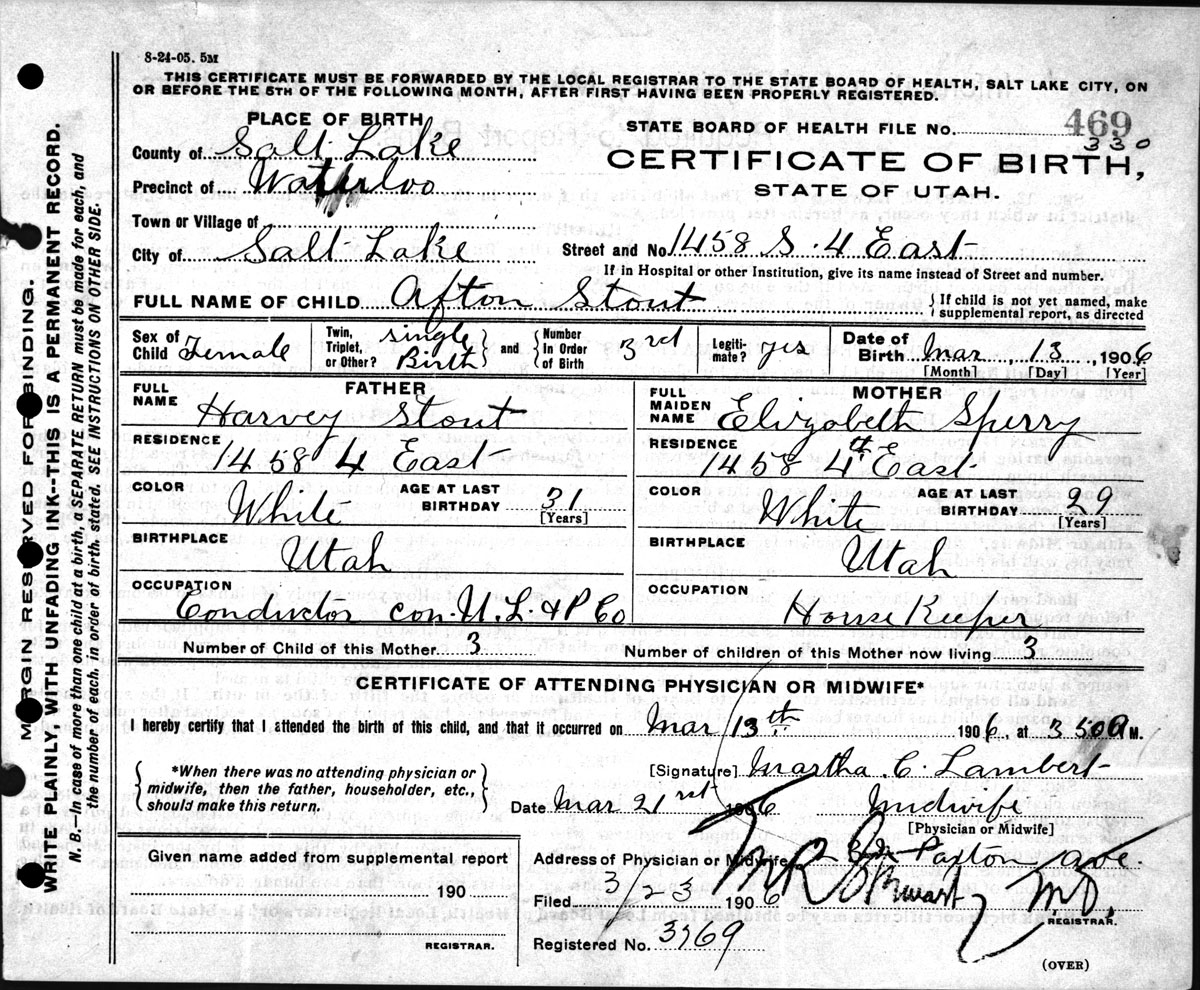 8-24-05. 5M
THIS CERTIFICATE MUST BE FORWARDED BY THE LOCAL REGISTRAR TO THE STATE BOARD OF HEALTH, SALT LAKE CITY, ON
OR BEFORE THE 5TH OF THE FOLLOWING MONTH, AFTER FIRST HAVING BEEN PROPERLY REGISTERED.
PLACE OF BIRTH
STATE BOARD OF HEALTH FILE No. 469
330
County of Salt Lake
CERTIFICATE OF BIRTH,
Precinct of Waterloo
STATE OF UTAH.
Town or Village of
City of Salt Lake Street and No. 1458 S. 4 East
If in Hospital or other Institution, give its name instead of Street and number.
FULL NAME OF CHILD Afton Stout {If child is not yet named, make supplemental report, as directed
Sex of Child Female Twin, Triplet, or Other? Single Birth } and { Number In Order of Birth 3rd Legitimate? yes Date of Birth Mar, 13, 1906
[Month] [Day] [Year]
FATHER
FULL NAME Harvey Stout
RESIDENCE
1458 4 East
COLOR White AGE AT LAST BIRTHDAY 31
[Years]
BIRTHPLACE
Utah
OCCUPATION
Conductor con. U. L. & P Co
MOTHER
FULL MAIDEN NAME Elizabeth Sperry
RESIDENCE
1458 4th East
COLOR White AGE AT LAST BIRTHDAY 29
[Years]
BIRTHPLACE
Utah
OCCUPATION
House Keeper
Number of Child of this Mother 3 Number of children of this Mother now living 3
CERTIFICATE OF ATTENDING PHYSICIAN OR MIDWIFE*
I hereby certify that I attended the birth of this child, and that it occurred on Mar 13th 1906, at 3 50 a M.
{*When there was no attending physician or
midwife, then the father, householder, etc.,
should make this return.}
[Signature] Martha C. Lambert
Date Mar 21rst 1906 Midwife
[Physician or Midwife]
Given name added from supplemental report
190
REGISTRAR.
Address of Physician or Midwife Paxton ave.
Filed 3/23 1906 M.D.
REGISTRAR.
Registered No. 3969
(OVER)
MARGIN RESERVED FOR BINDING.
WRITE PLAINLY, WITH UNFADING INK--THIS IS A PERMANENT RECORD.
N. B.—In case of more than one child at a birth, a SEPARATE RETURN must be made for each, and
the number of each, in order of birth stated. SEE INSTRUCTIONS ON OTHER SIDE.